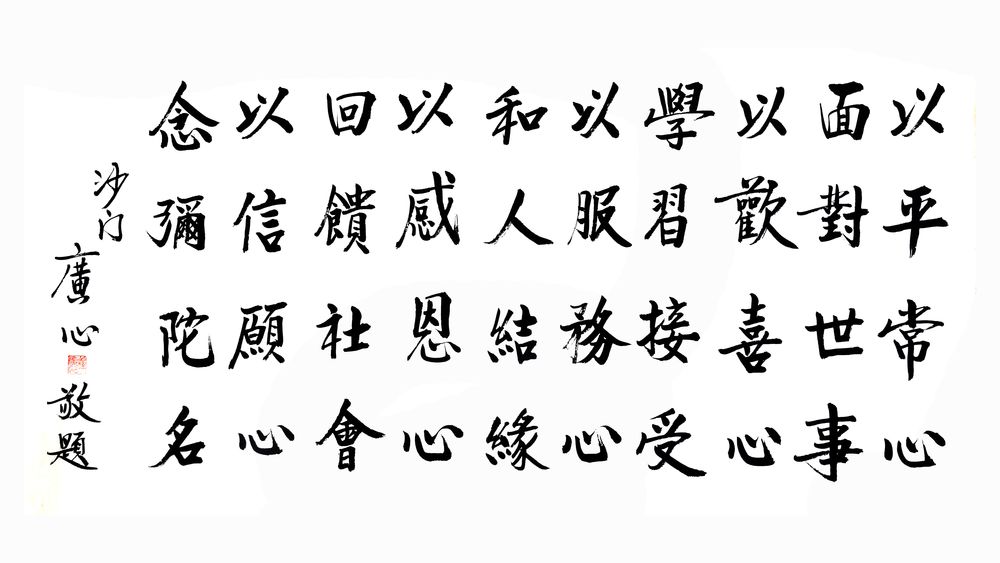 以平常心
面對世事
以歡喜心
學習接受
以服務心
和人結緣
以感恩心
回饋社會
以信願心
念彌陀名
沙门
廣心
敬題